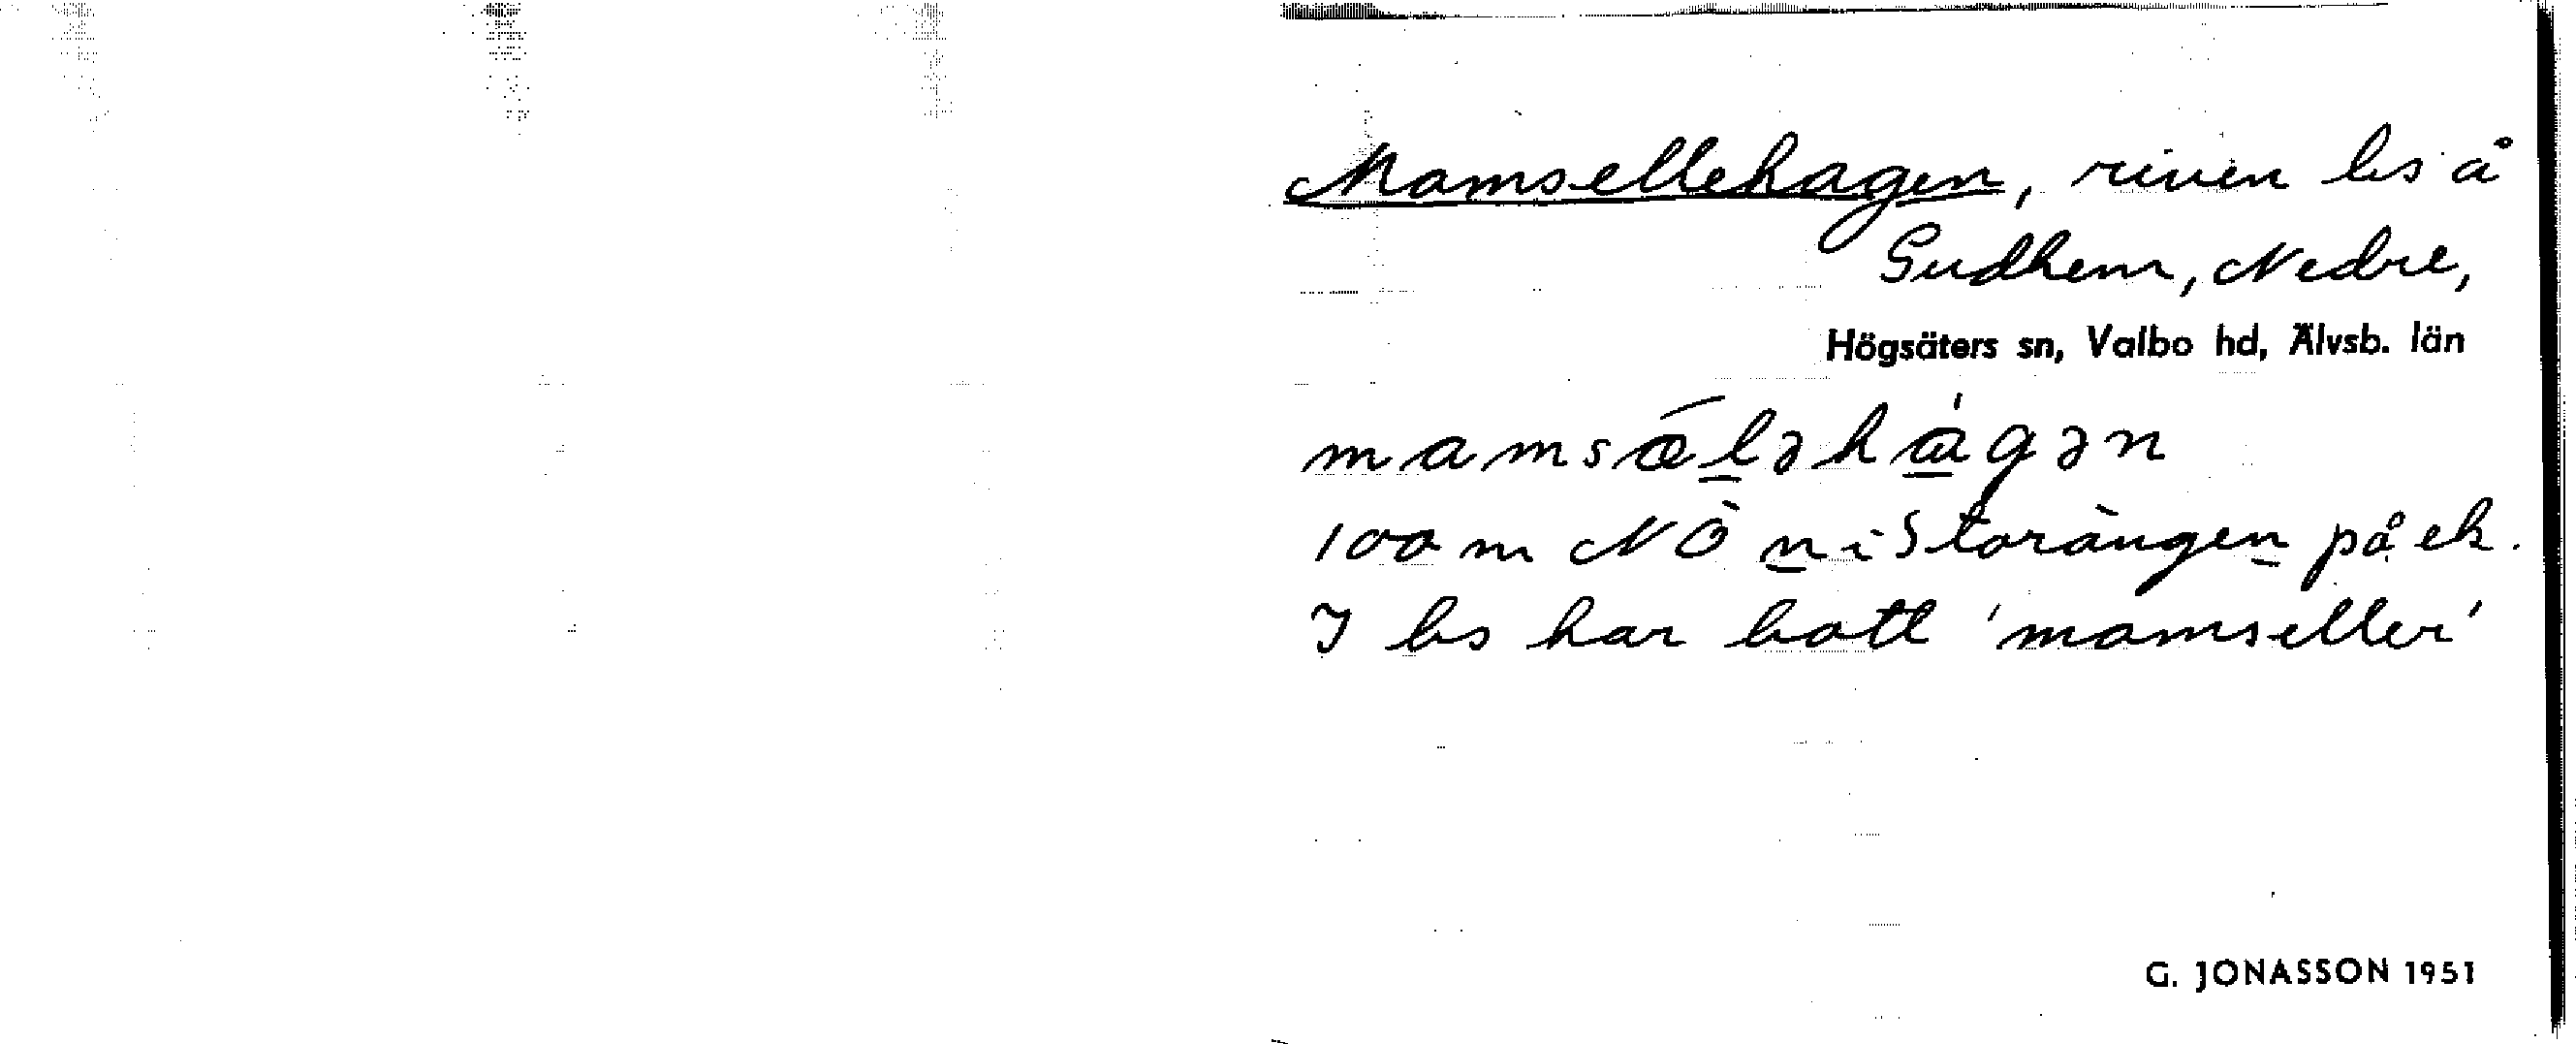 Mamsellehagen, riven bs å
Gudhem, Nedre,
Högsäters sn, Valbo hd, Älvsb. län
mamsæ̅l̲əha̲̍gən
100 m NÖ n i Storängen på ek.
I bs har bott 'mamseller'
G. JONASSON 1951